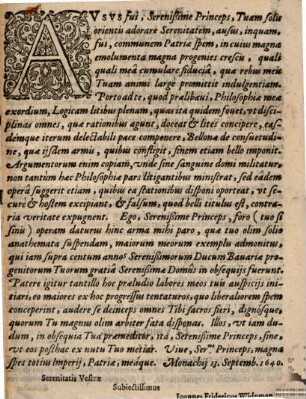 AVSVS fui, Serenissime Princeps, Tuam solio
orientis adorare Serenitatem, ausus, inquam,
fui, communem Patriæ spem, in cuius magna
emolumenta magna progenies crescis, quali
quali meâ cumulare fiduciâ, quæ rebus meis
Tuam animi large promittit indulgentiam.
Porto ad te, quod prælibaui, Philosophiæ meæ
exordium, Logicam litibus plenam, quasi ita quidem fuet, vt disci-
plinas omnes, quæ rationibus agunt, doceat & lites concipere, ea-
démque iterum delectabili pace componere, Bellonæ de consuetudi-
ne, quæ iisdem armis, quibus confligit, finem etiam bello imponit.
Argumentorum enim copiam, vnde sine sanguine domi militatur,
non tantùm hæc Philosophiæ pars litigantibus ministrat, sed eâdem
operâ suggerit etiam, quibus ea stationibus disponi oporteat, vt se-
curè & hostem excipiant, & falsum, quod belli titulus est, contra-
ria veritate expugnent. Ego, Serenissime Princeps, foro (tuo si
sinis) operam daturus hinc arma mihi paro, quæ tuo olim solio
anathemata suspendam, maiorum meorum exemplo admonitus,
qui iam supra centum annos Serenissimorum Ducum Bauariæ pro-
genitorum Tuorum gratiâ Serenissimæ Domûs in obsequijs fuerunt.
Patere igitur tantillo hoc præludio labores meos tuis auspicijs ini-
tiari, eo maiores ex hoc progressus tentaturos, quo liberaliorem spem
conceperint, audere se deinceps omnes Tibi sacros fieri, dignósque
quorum Tu magnus olim arbiter fata disponas. Illos, vt iam du-
dum, in obsequia Tua præmeditor, itâ, Serenissime Princeps, sine,
vt eos posthac ex nutu Tuo metiar. Viue, Ser.me Princeps, magna
spes totius Imperij, Patriæ, meáque. Monachij 13. Septemb. 1640.
Serenitatis Vestræ
Subiectissimus
Ioannes Fridericus